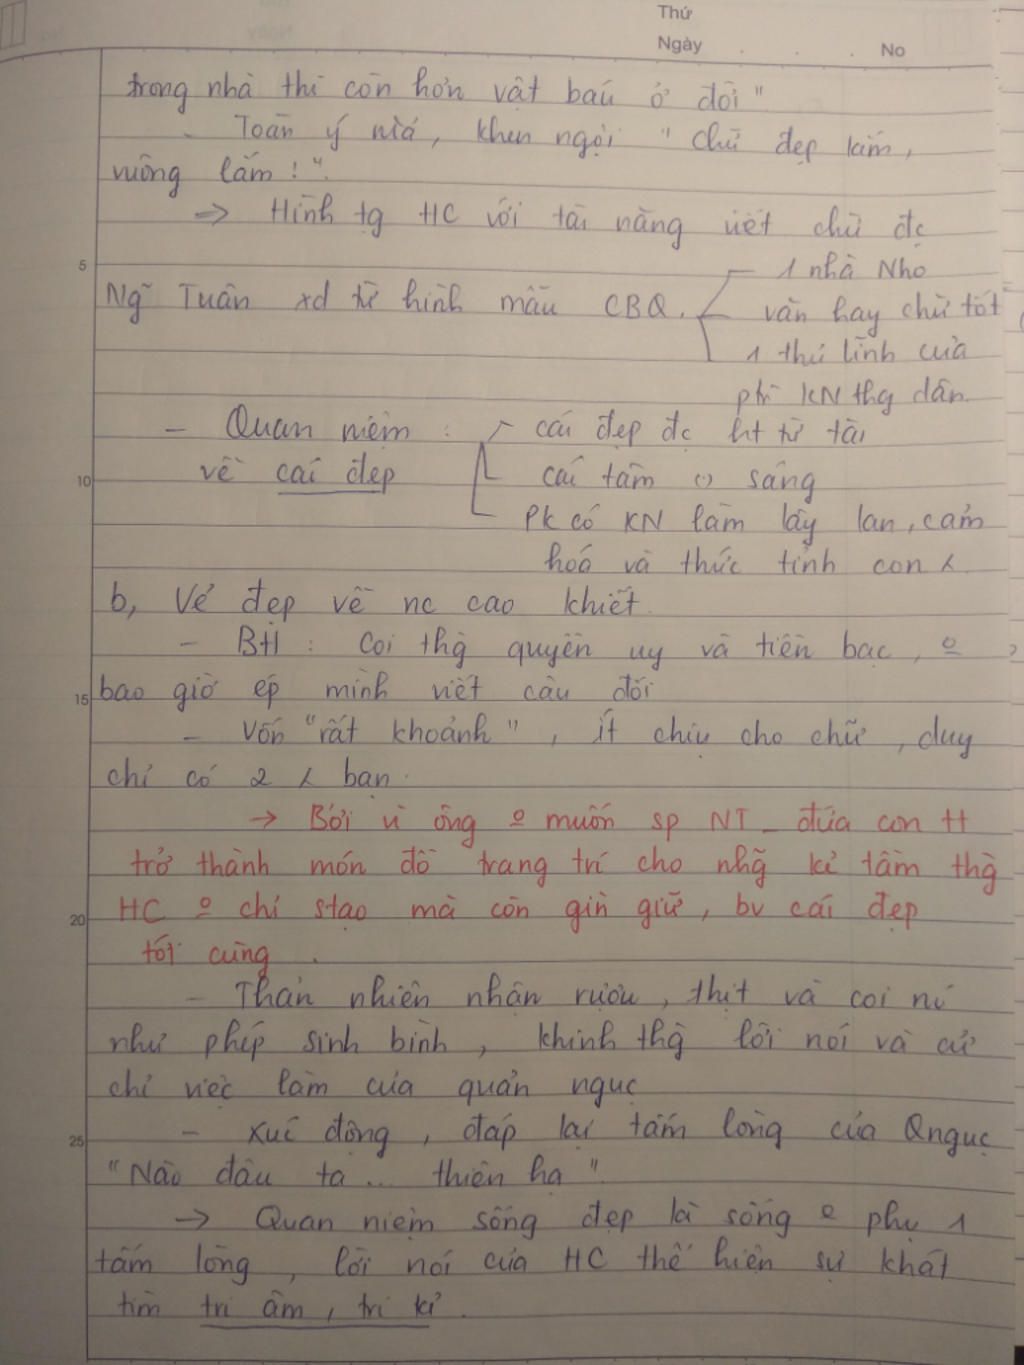 Thứ
Ngày . . . No
trong nhà thì còn hơn vật báu ở đời"
- Toàn ý nữa, khen ngợi "chữ đẹp lắm,
vuông lắm!".
→ Hình tg HC với tài năng viết chữ đc
5
1 nhà Nho
Ng~ Tuân xd từ hình mẫu CBQ. văn hay chữ tốt
1 thủ lĩnh của
ptr KN thg dân.
- Quan niệm : cái đẹp đc ht từ tài
10 về cái đẹp cái tâm () sáng
Pk có KN làm lây lan, cảm
hoá và thức tỉnh con λ
b, Vẻ đẹp về nc cao khiết.
- BH : Coi thg quyền uy và tiền bạc, o
15 bao giờ ép mình viết câu đối
- Vốn "rất khoảnh", ít chịu cho chữ, duy
chỉ có 2 λ bạn.
→ Bởi vì ông o muốn sp NT - đứa con tt
trở thành món đồ trang trí cho nhg~ kẻ tầm thg
20 HC o chỉ stạo mà còn gìn giữ, bv cái đẹp
tới cùng.
- Thản nhiên nhận rượu, thịt và coi nó
như phép sinh bình, khinh thg lời nói và cử
chỉ việc làm của quản ngục
25 - Xúc động, đáp lại tấm lòng của Qngục
"Nào đâu ta ... thiên hạ"
→ Quan niệm sống đẹp là sống o phụ 1
tấm lòng, lời nói của HC thể hiện sự khát
tìm tri âm, tri kỉ.